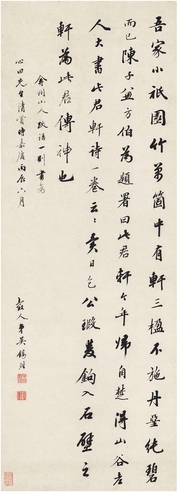 吾家小祇園竹萬箇中有軒三楹不施丹堊純碧
而已陳子兼方伯為題署曰此君軒今年歸自楚得山谷老
人大書此君軒詩一卷云云異日乞公瑕雙鉤入石壁之
軒為此君傳神也
弇州山人跋語一則書為
心田先生清賞時嘉慶丙辰六月
毅人弟吳錫麒